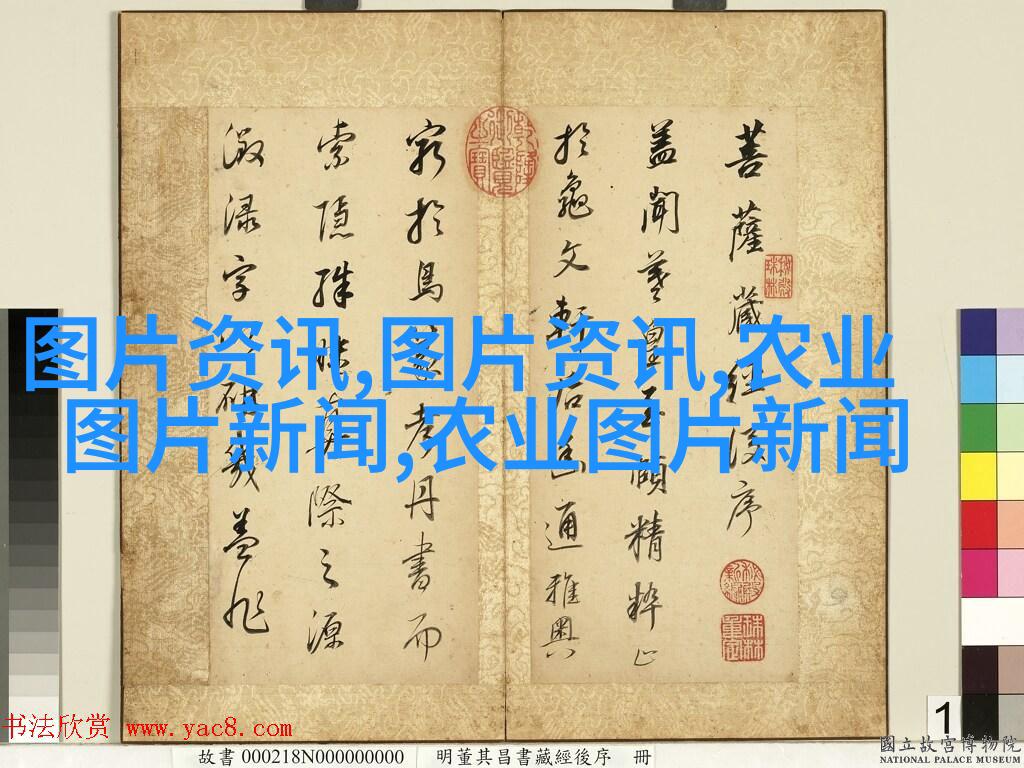 菩薩藏經後序
蓋聞羲皇至賾精粹止
於龜文軒后幽通雅奧
窮於鳥篆考丹書而
索隱殊昧真際之源
淥字研幾蓋非
图片资讯,图片资讯,农业
图片新闻,农业图片新闻
书法欣赏 www.yac8.com
故書 000218N000000000 明董其昌書藏經後序 冊
1
國立故宮博物院
NATIONAL PALACE MUSEUM